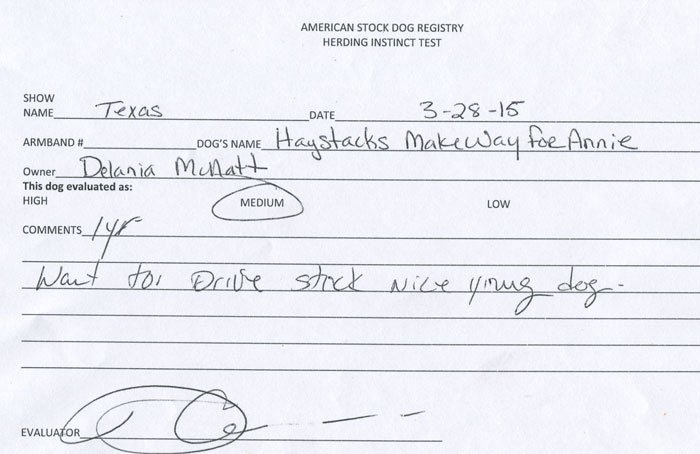 AMERICAN STOCK DOG REGISTRY
HERDING INSTINCT TEST
SHOW
NAME Texas DATE 3-28-15
ARMBAND # DOG'S NAME Haystacks Make Way for Annie
Owner Delania McNatt
This dog evaluated as:
HIGH MEDIUM LOW
COMMENTS 1yr
Want to Drive stock nice young dog.
EVALUATOR